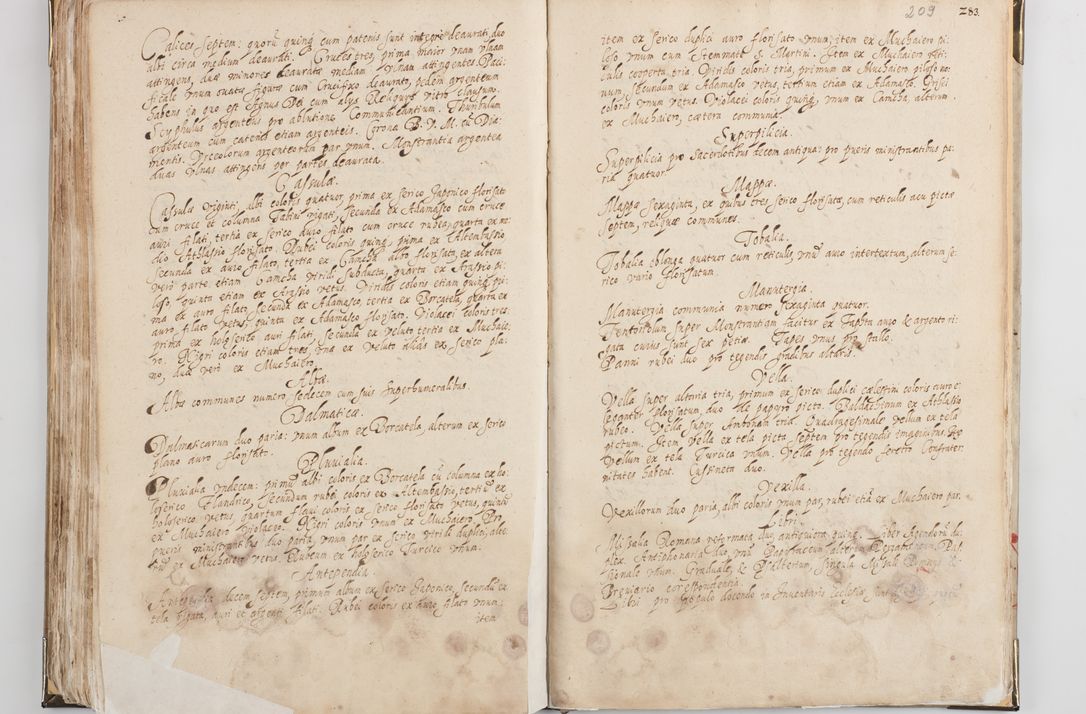 Calices septem: quorũ quinq cum patenis sunt integrè deaurati, duo
albi circa medium deaurati. Cruces tres, prima maior vnam vlnam
attingens, duæ minores deauratæ mediam vlnam attingentes. Paci:
ficale vnum ouatæ figuræ cum Crucifixo deaurato, pedem argenteum
habens in quo est Agnus Dei cum alijs Reliquijs vitro clausum.
Scyphulus argenteus pro ablutione Communicantium. Thuribulum
argenteum cum catenis etiam argenteis. Corona B. V. M. cũ Dia:
mentis. Vrceolorum argenteorum par vnum. Monstrantia argentea
duas vlnas attingens per partes deaurata.
Casulæ.
Casulæ viginti, albi coloris quatuor, prima ex serico Japonico florisato
cum cruce et columna Tabin rigati, secunda ex Adamasco cum cruce
auri filati, tertia ex serico auro filato cum cruce rubea, quarta ex me:
dio Athlassio florisato. Rubei coloris quinq, prima ex Altembassio,
secunda ex auro filato, tertia ex Camcha albo florisata, ex altera
verò parte etiam Camcha viridi subducta, quarta ex Axassio pi:
loso, quinta etiam ex Axassio vetus. Viridis coloris etiam quinq, pri:
ma ex auro filato, secunda ex Adamasco, tertia ex Borcatela, quarta ex
auro filato vetus, quinta ex Adamasco florisato. Violacei coloris tres:
prima ex holosenso auri filati, secunda ex veluto tertia ex Muchaie:
ro. Nigri coloris etiam tres, vna ex veluto aliàs ex serico pla:
no, duæ verò ex Muchaiero.
Albæ.
Albæ communes numero sedecem cum suis superhumeralibus.
Dalmaticæ.
Dalmaticarum duo paria: vnum album ex Borcatela, alterum ex serico
plano auro florisato.
Pluuialia.
Pluuialia vndecem: primũ albi coloris ex Borcatela cũ columna ex ho:
loserico Flandrico, secundum rubei coloris ex Altembassio, tertiũ ex
holoserico vetus, quartum flaui coloris ex serico florisato vetus, quintũ
ex Muchaiero violaceo. Nigri coloris vnum ex Muchaiero. Pro
pueris ministrantibus duo paria, vnum par ex serico viridi duplici, alte:
rum ex Muchaiero vetus. Rubeum ex holoserico Turcico vnum.
Antependia.
Antependia decem septem, primum album ex serico Japonico, secundũ ex
tela rigata, auri et argenti filati. Rubei coloris ex auro filato vnum:
item
209
283.
item ex serico duplici auro florisato vnum; item ex Muchaiero pi:
loso vnum cum Stemmate S. Martini. Item ex Muchaiero reti:
culis cooperta tria. Viridis coloris tria, primum ex Muchaiero piloso no:
uum, secundum ex Adamasco vetus, tertium etiam ex Adamasco. Grisei
coloris vnum vetus. Violacei coloris quinq, vnum ex Camcha, alterum
ex Muchaiero, cætera communia.
Superpilicia.
Superpilicia pro Sacerdotibus decem antiqua: pro pueris ministrantibus pa:
ria quatuor.
Mappæ.
Mappæ sexaginta, ex quibus tres serico florisatæ, cum reticulis acu pictæ
septem, reliquæ communes.
Tobalia.
Tobalia oblonga quatuor cum reticulis, vnũ auro intertextum, alterum se:
rico vario florisatum.
Manutergia.
Manutergia communia numero sexaginta quatuor.
Tentoriolum super Monstrantiam facitur ex Tabita auro & argento ri:
gata cuius sunt sex petiæ. Tapes vnus pro stallo.
Panni rubei duo pro tegendis gradibus altaris.
Vella.
Vella super altaria tria, primum ex serico duplici cælestini coloris auro e:
leganter florisatum, duo de papyro picto. Baldachinum ex Athlassio
rubeo. Vella super Ambonam tria. Quadragesimale vellum ex tela
pictum. Item vella ex tela picta septem pro tegendis imaginibus.
Vellum ex tela Turcica vnum. Vella pro tegendo feretro Confrater:
nitates habent. Cussineta duo.
Vexilla.
Vexillorum duo paria, albi coloris vnum par, rubei etiã ex Muchaiero par.
Libri.
Missalia Romana reformata duo antiquiora quinq. Liber Agendorũ du:
plex. Antiphonaria duo vnũ
sionale vnum. Graduale, & Psalterium, singula Missali Romano &
Breuiario correspondentia.
Libri pro docendo in Inuentario Ecclesiæ sunt